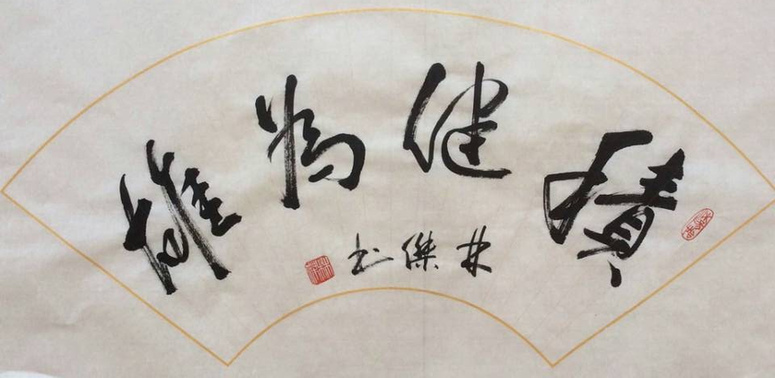 積健為雄
林傑书